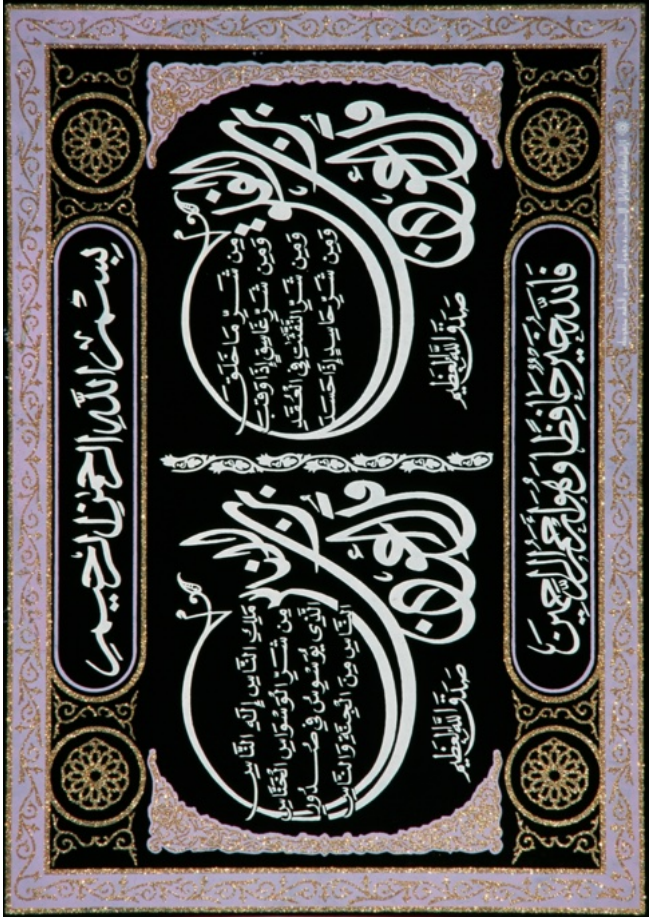 بسم الله الرحمن الرحيم
قل أعوذ برب الفلق
من شر ما خلق
ومن شر غاسق إذا وقب
ومن شر النفثت في العقد
ومن شر حاسد إذا حسد
صدق الله العظيم
قل أعوذ برب الناس
ملك الناس إله الناس
من شر الوسواس الخناس
الذي يوسوس في صدور
الناس من الجنة والناس
صدق الله العظيم
فالله خير حافظا وهو أرحم الراحمين